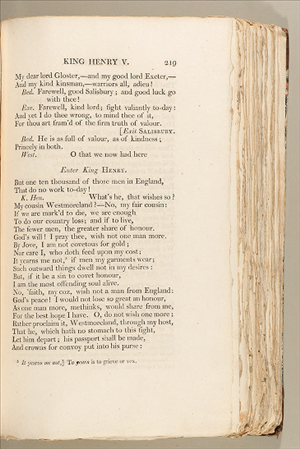 KING HENRY V. 219
My dear lord Gloster,—and my good lord Exeter,—
And my kind kinsman,—warriors all, adieu!
Bed. Farewell, good Salisbury; and good luck go
with thee!
Exe. Farewell, kind lord; fight valiantly to-day:
And yet I do thee wrong, to mind thee of it,
For thou art fram'd of the firm truth of valour.
[Exit SALISBURY.
Bed. He is as full of valour, as of kindness;
Princely in both.
West. O that we now had here
Enter King HENRY.
But one ten thousand of those men in England,
That do no work to-day!
K. Hen. What's he, that wishes so?
My cousin Westmoreland?—No, my fair cousin:
If we are mark'd to die, we are enough
To do our country loss; and if to live,
The fewer men, the greater share of honour.
God's will! I pray thee, wish not one man more.
By Jove, I am not covetous for gold;
Nor care I, who doth feed upon my cost;
It yearns me not,⁵ if men my garments wear;
Such outward things dwell not in my desires:
But, if it be a sin to covet honour,
I am the most offending soul alive.
No, 'faith, my coz, wish not a man from England:
God's peace! I would not lose so great an honour,
As one man more, methinks, would share from me,
For the best hope I have. O, do not wish one more:
Rather proclaim it, Westmoreland, through my host,
That he, which hath no stomach to this fight,
Let him depart; his passport shall be made,
And crowns for convoy put into his purse:
⁵ It yearns me not,] To yearn is to grieve or vex.